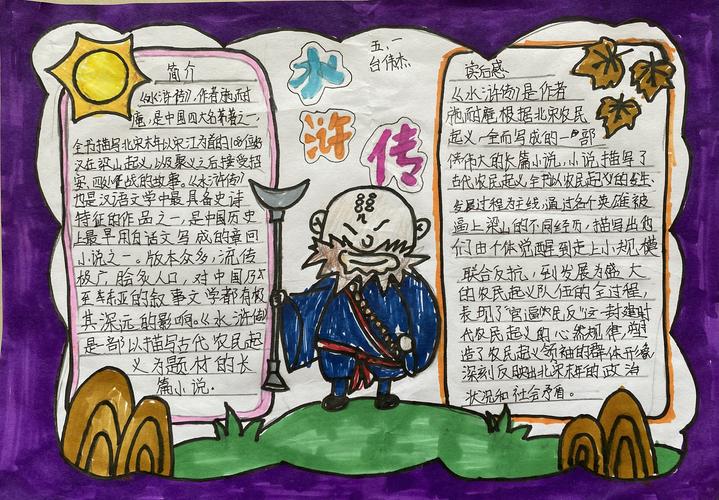 水
浒
传
五.一
台伟杰
简介
《水浒传》,作者施耐
庵,是中国四大名著之一,
全书描写北宋末年以宋江为首的108位好
汉在梁山起义,以及聚义之后接受招
安、四处征战的故事。《水浒传》
也是汉语文学中最具备史诗
特征的作品之一,是中国历史
上最早用白话文写成的章回
小说之一。版本众多,流传
极广,脍炙人口,对中国乃
至东亚的叙事文学都有极
其深远的影响。《水浒传》
是一部以描写古代农民起
义为题材的长
篇小说.
读后感
《水浒传》是作者
施耐庵根据北宋农民
起义一全而写成的一部
伟大的长篇小说,小说描写了
古代农民起义全书以农民起义的发生、
发展过程为主线,通过各个英雄被
逼上梁山的不同经历,描写出他
们由个体觉醒到走上小规模
联合反抗,到发展为盛大
的农民起义队伍的全过程,
表现了“官逼民反”这一封建时
代农民起义的必然规律,塑
造了农民起义领袖的群体形象,
深刻反映出北宋末年的政治
状况和社会矛盾。